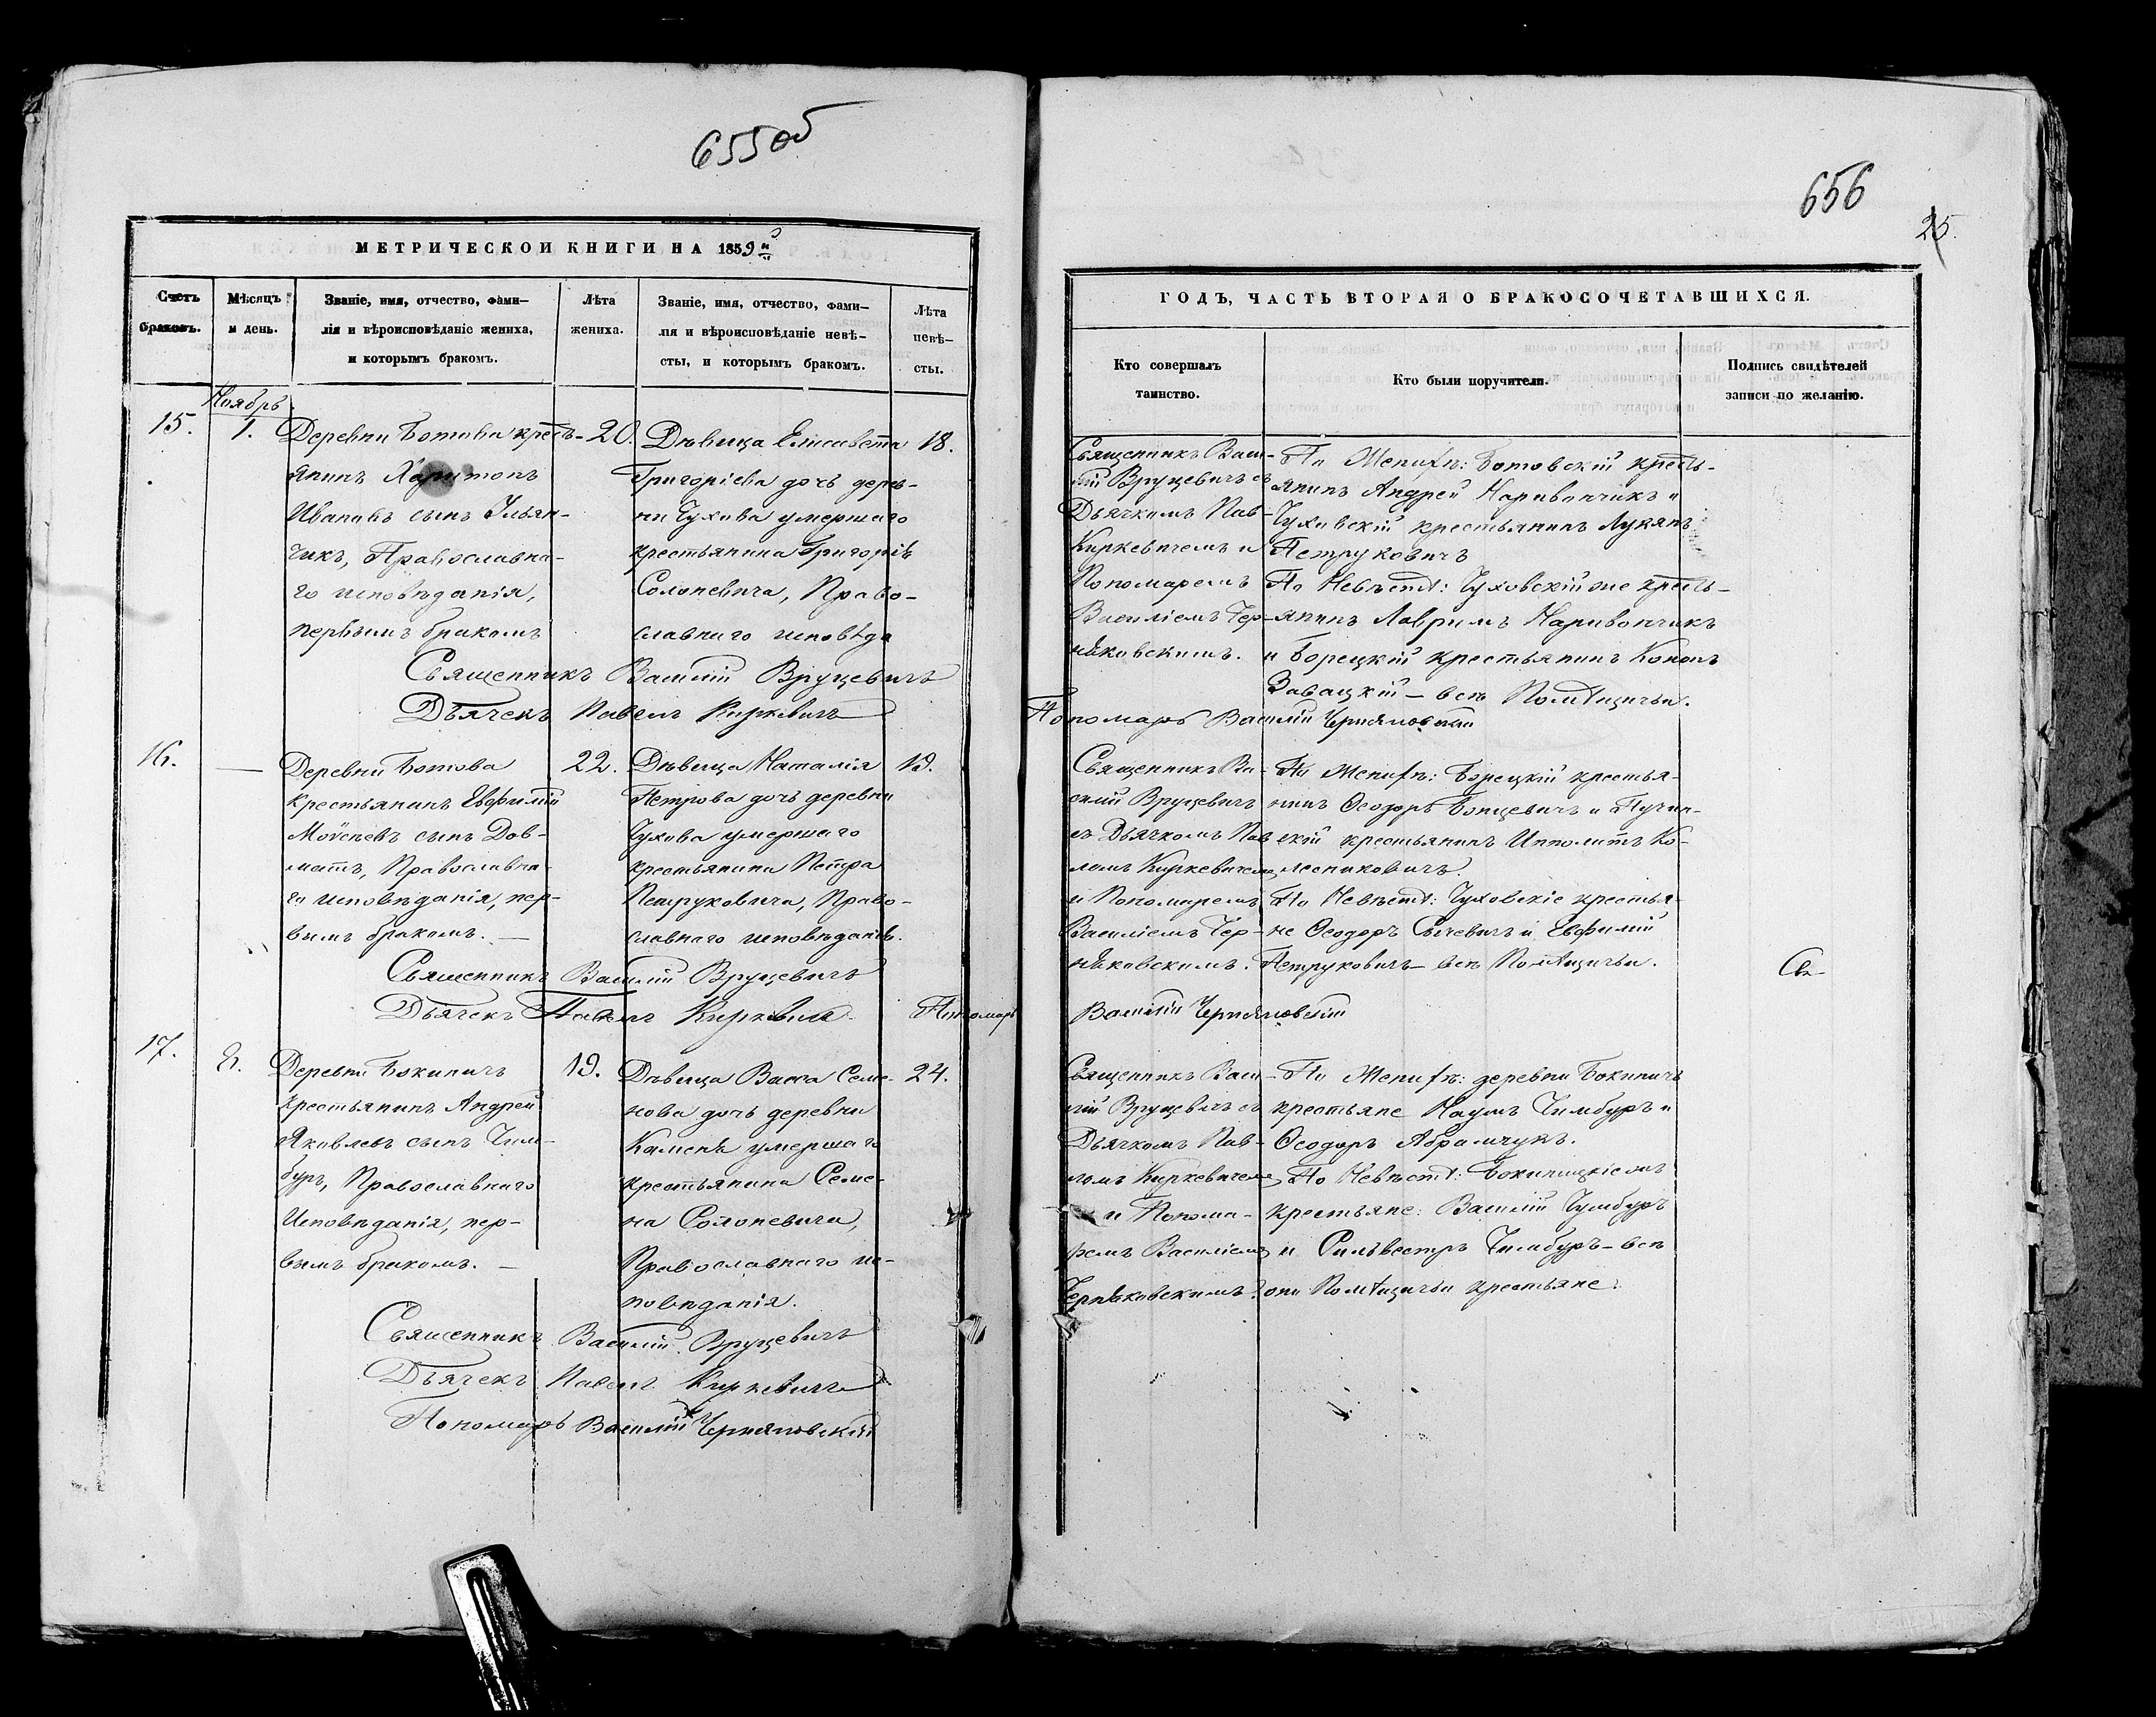 655об
МЕТРИЧЕСКОЙ КНИГИ НА 1859й
Счетъ браковъ.
Мѣсяцъ и день.
Званіе, имя, отчество, фами-
лія и вѣроисповѣданіе жениха,
и которымъ бракомъ.
Лѣта
жениха.
Званіе, имя, отчество, фами-
лія и вѣроисповѣданіе невѣ-
сты, и которымъ бракомъ.
Лѣта
невѣ-
сты.
15.
Ноябрь
1.
Деревни Ботова кресть-
янинъ Харитонъ
Ивановъ сынъ Ильян-
чикъ, Православна-
го исповѣданія,
первымъ бракомъ
20.
Дѣвица Елисавета
Григоріева дочь дерев-
ни Чухова умершаго
крестьянина Григорія
Солоневича, Право-
славнаго исповѣда
18.
Священникъ Василій Вруцевичъ
Дьячекъ Павелъ Киркевичъ
16.
—
Деревни Ботова
крестьянинъ Евфимій
Моѵсеевъ сынъ Дов-
матъ, Православна-
го исповѣданія, пер-
вымъ бракомъ. —
22.
Дѣвица Наталія
Петрова дочь деревни
Чухова умершаго
крестьянина Петра
Петруковича, Право-
славнаго исповѣданія.
19.
Священникъ Василій Вруцевичъ
Дьячекъ Павелъ Киркевичъ
Пономарь
17.
8.
Деревни Бокиничъ
крестьянинъ Андрей
Яковлевъ сынъ Чим-
буръ, Православнаго
Исповѣданія, пер-
вымъ бракомъ. —
19.
Дѣвица Васса Семе-
нова дочь деревни
Каменя умершаго
крестьянина Семе-
на Солоневича,
Православнаго ис-
повѣданія.
24.
Священникъ Василій Вруцевичъ
Дьячекъ Павелъ Киркевичъ
Пономарь Василій Черняковскій
656
25.
ГОДЪ, ЧАСТЬ ВТОРАЯ О БРАКОСОЧЕТАВШИХСЯ.
Кто совершалъ
таинство.
Кто были поручители.
Подпись свидѣтелей
записи по желанію.
Священникъ Васи-
лій Вруцевичъ съ
Дьячкомъ Пав-
Киркевичемъ и
Пономаремъ
Василіемъ Чер-
няковскимъ.
По Женихѣ: Ботовскій кресть-
янинъ Андрей Наривончикъ и
Чуховскій крестьянинъ Лукянъ
Петруковичъ
По Невѣстѣ: Чуховскій же кресть-
янинъ Лавримъ Наривончикъ
и Борецкій крестьянинъ Кононъ
Завацкій — всѣ Помѣщичьи.
Пономарь Василій Черняковскій
Священникъ Ва-
силій Вруцевичъ
съ Дьячкомъ Пав
ломъ Киркевичемъ
и Пономаремъ
Василіемъ Чер-
няковскимъ.
По Женихѣ: Борецкій крестья-
нинъ Ѳеодоръ Бонцевичъ и Пучин-
скій крестьянинъ Ипполитъ Ко-
лесниковичъ.
По Невѣстѣ: Чуховскіе крестья-
не Ѳеодоръ Сычевичъ и Евфимій
Петруковичъ — всѣ Помѣщичьи.
Св-
Василій Черняковскій
Священникъ Васи-
лій Вруцевичъ съ
Дьячкомъ Пав-
ломъ Киркевичемъ
и Понома-
ремъ Василіемъ
Черняковскимъ.
По Женихѣ: деревни Бокиничъ
крестьяне Наумъ Чимбуръ и
Ѳеодоръ Абрамчукъ.
По Невѣстѣ: Бокиницкіе жъ
крестьяне: Василій Чумбуръ
и Сильвестръ Чимбуръ — всѣ
они Помѣщичьи крестьяне.